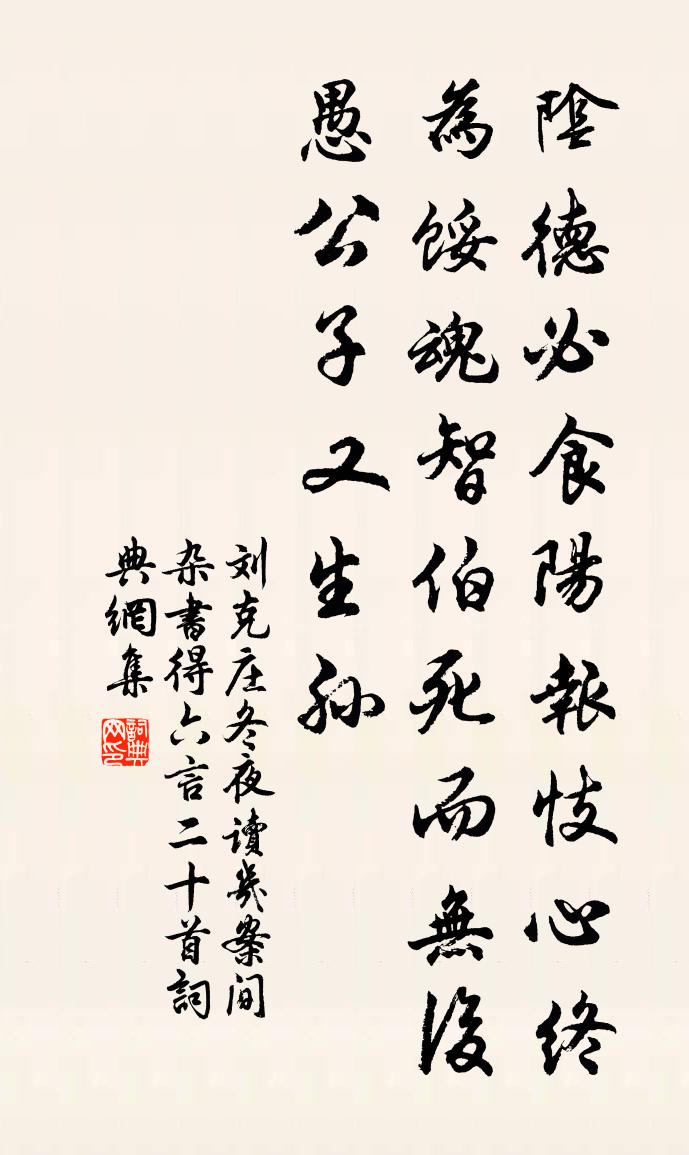 陰德必食陽報忮心終
為餒魂智伯死而無後
愚公子又生孙
刘克庄冬夜讀几案间
杂書得六言二十首詞
典網集
詞典网印